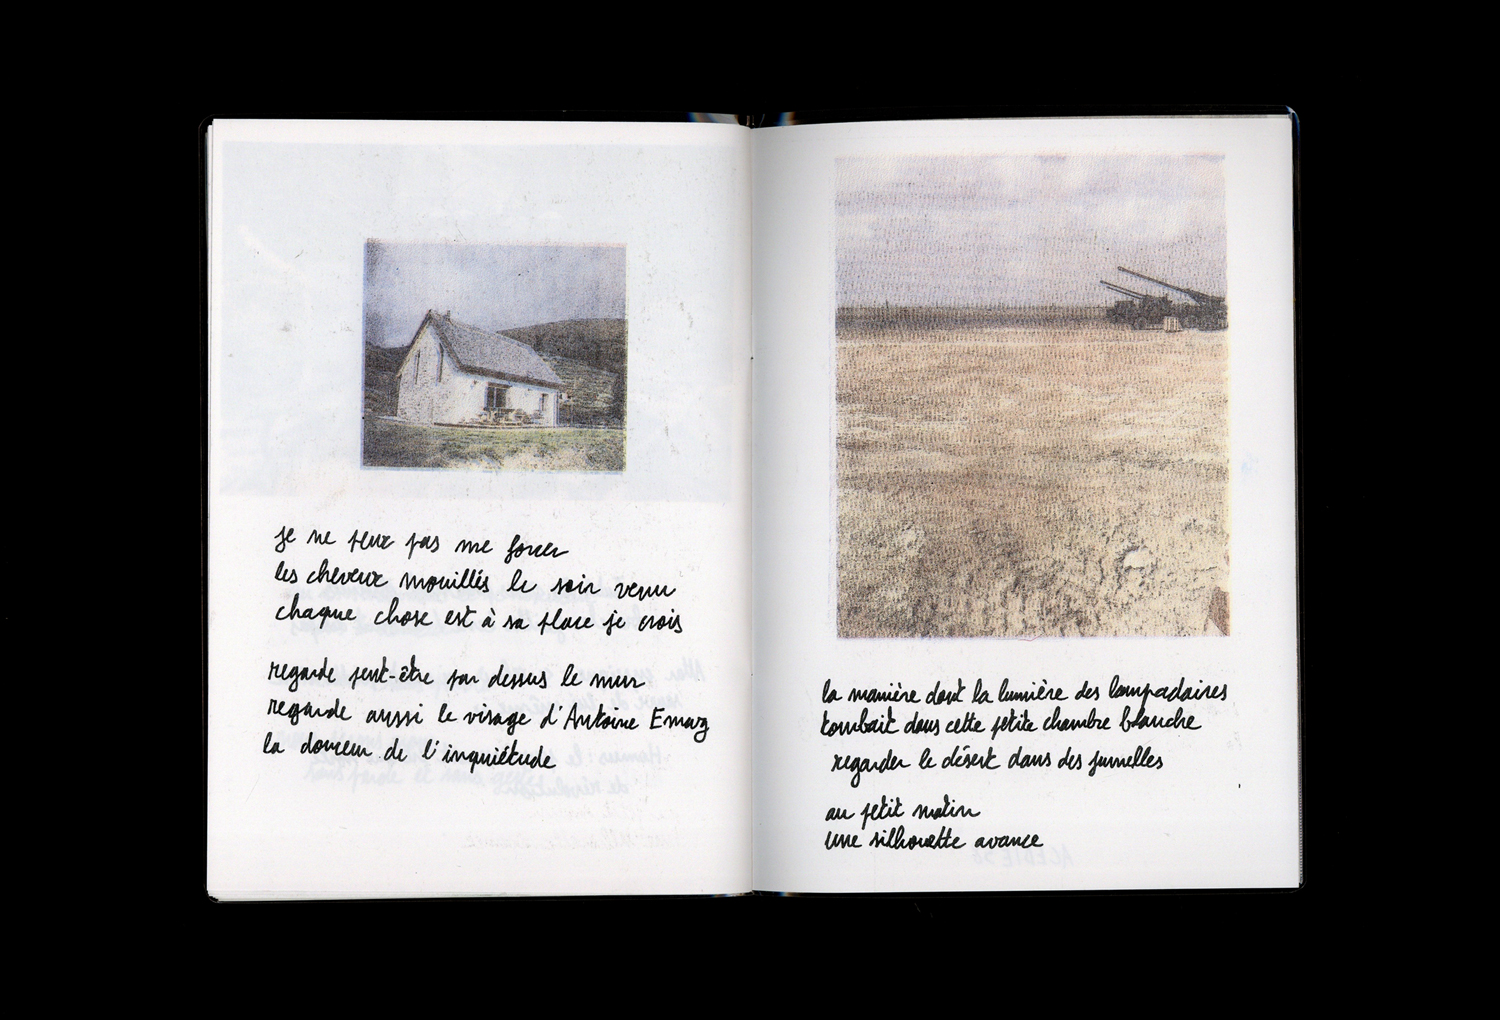 je ne peux pas me forcer
les cheveux mouillés le soir venu
chaque chose est à sa place je crois
regarde peut-être par dessus le mur
regarde aussi le visage d'Antoine Emaz
la douceur de l'inquiétude
la manière dont la lumière des lampadaires
tombait dans cette petite chambre blanche
regarder le désert dans des jumelles
au petit matin
une silhouette avance